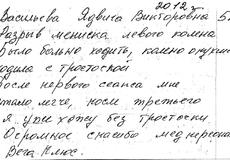 2012 г
Васильева Ядвига Викторовна 5
Разрыв мениска левого колена
Было больно ходить, колено опухло
ходила с тростоской
После первого сеанса мне
стало легче, после третьего
я уже хожу без тростоски
Огромное спасибо мед персона
Вега Плюс.